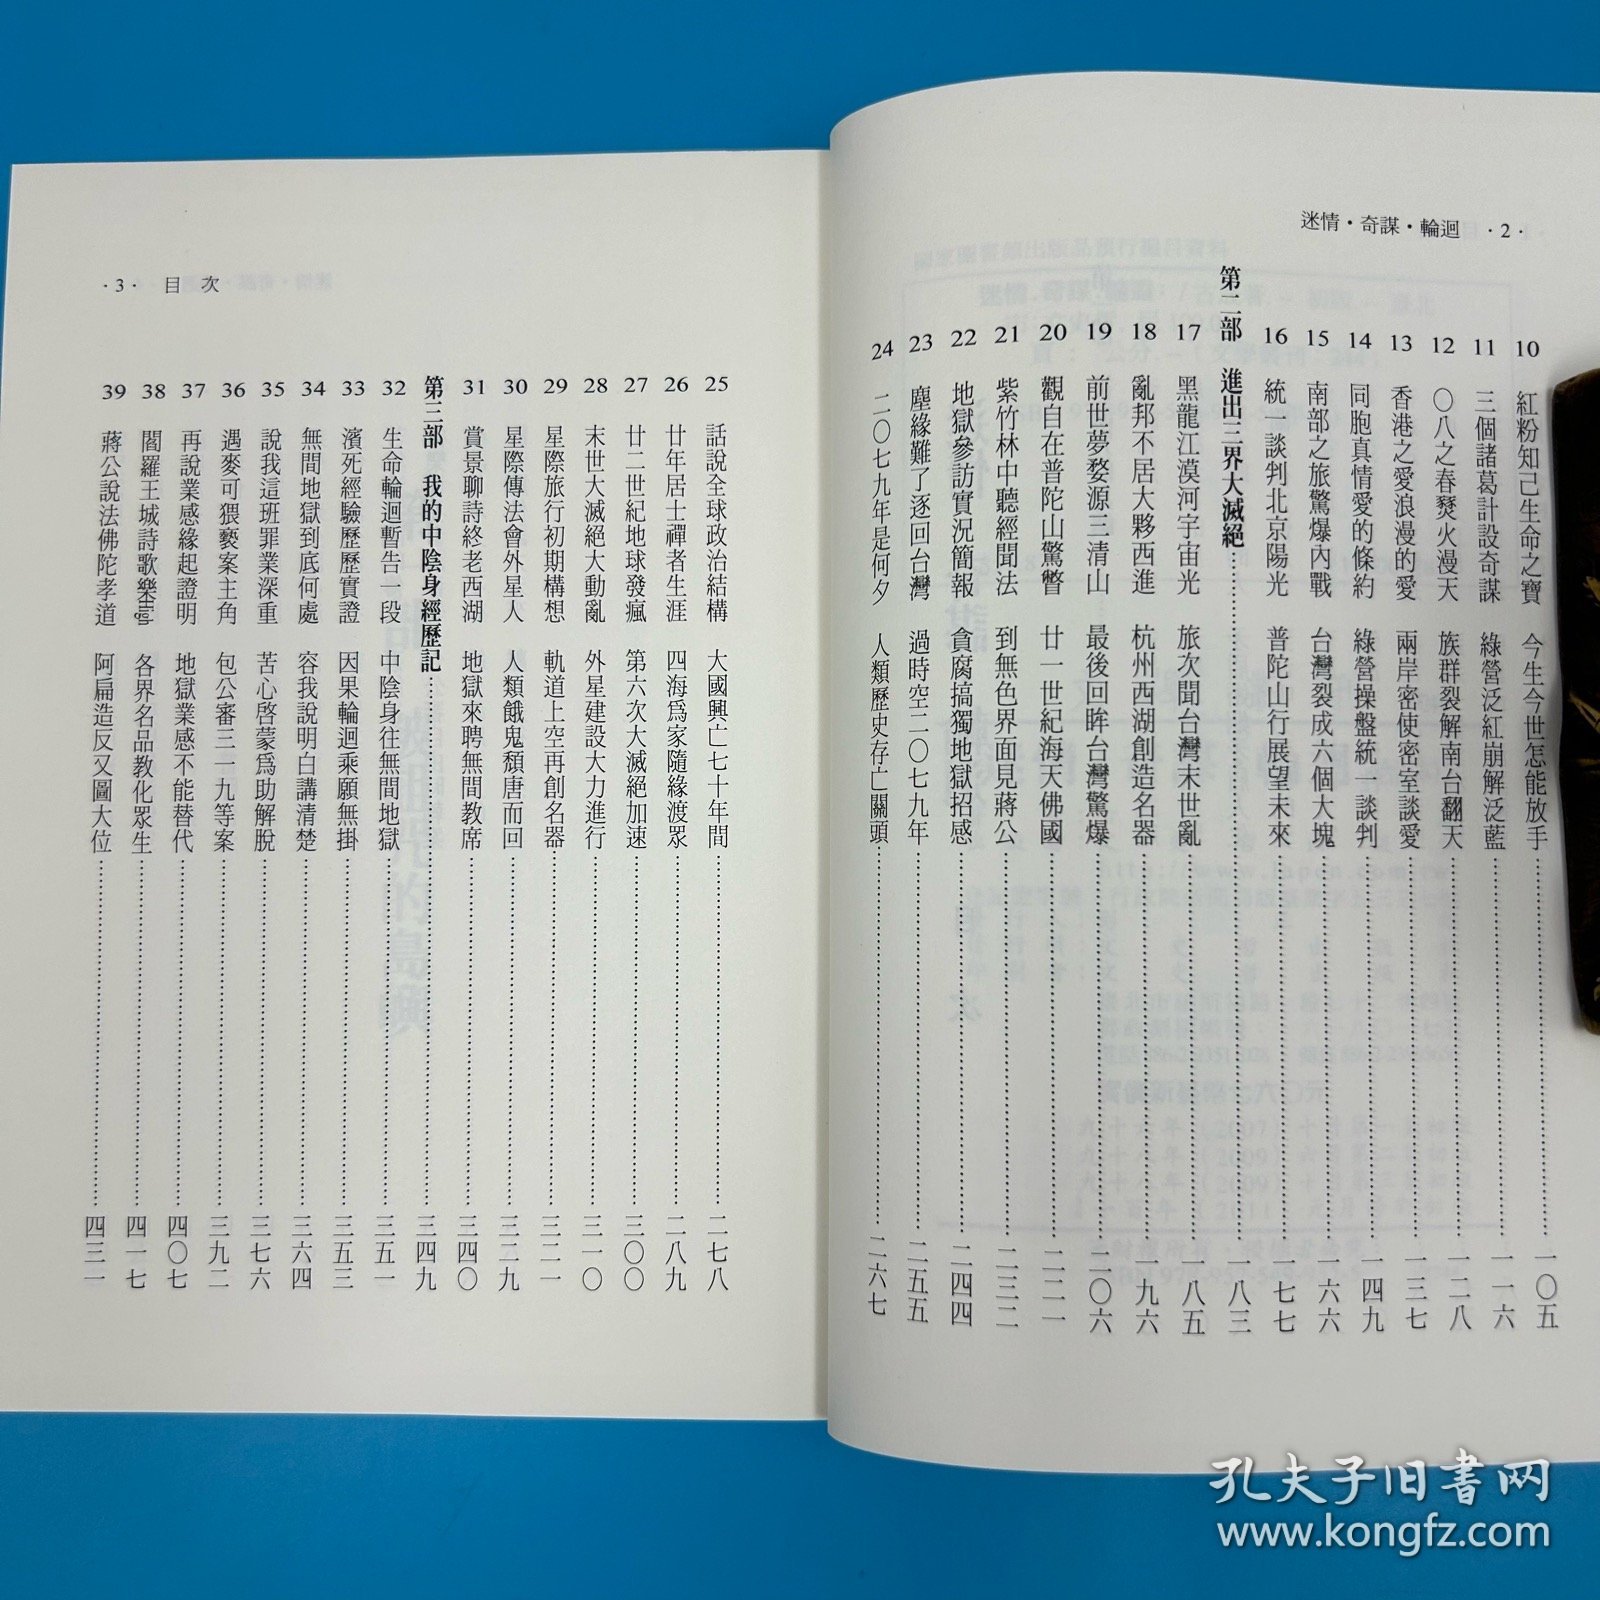 迷情・奇謀・輪迴 ・2・
10 紅粉知己生命之寶 今生今世怎能放手……一〇五
11 三個諸葛計設奇謀 綠營泛紅崩解泛藍……一一六
12 〇八之春燹火漫天 族群裂解南台翻天……一二八
13 香港之愛浪漫的愛 兩岸密使密室談愛……一三七
14 同胞真情愛的條約 綠營操盤統一談判……一四九
15 南部之旅驚爆內戰 台灣裂成六個大塊……一六六
16 統一談判北京陽光 普陀山行展望未來……一七七
第二部 進出三界大滅絕……一八三
17 黑龍江漠河宇宙光 旅次聞台灣末世亂……一八五
18 亂邦不居大夥西進 杭州西湖創造名器……一九六
19 前世夢婺源三清山 最後回眸台灣驚爆……二〇六
20 觀自在普陀山驚瞥 廿一世紀海天佛國……二二一
21 紫竹林中聽經聞法 到無色界面見蔣公……二三二
22 地獄參訪實況簡報 貪腐搞獨地獄招感……二四四
23 塵緣難了逐回台灣 過時空二〇七九年……二五五
24 二〇七九年是何夕 人類歷史存亡關頭……二六七
・3・ 目次
25 話說全球政治結構 大國興亡七十年間……二七八
26 廿年居士禪者生涯 四海為家隨緣渡眾……二八九
27 廿二世紀地球發瘋 第六次大滅絕加速……三〇〇
28 末世大滅絕大動亂 外星建設大力進行……三一〇
29 星際旅行初期構想 軌道上空再創名器……三二一
30 星際傳法會外星人 人類餓鬼頹唐而回……三二九
31 賞景聊詩終老西湖 地獄來聘無間教席……三四〇
第三部 我的中陰身經歷記……三四九
32 生命輪迴暫告一段 中陰身往無間地獄……三五一
33 瀕死經驗歷歷實證 因果輪迴乘願無掛……三五三
34 無間地獄到底何處 容我說明白講清楚……三六四
35 說我這班罪業深重 苦心啓蒙為助解脫……三七六
36 遇麥可猥褻案主角 包公審三一九等案……三九二
37 再說業感緣起證明 地獄業感不能替代……四〇七
38 閻羅王城詩歌樂 各界名品教化眾生……四一七
39 蔣公說法佛陀孝道 阿扁造反又圖大位……四三一
孔夫子旧书网
www.kongfz.com